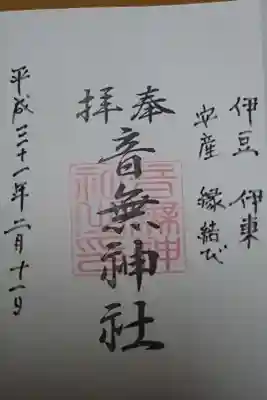 伊豆 伊東
安産 縁結び
奉拝
音無神社
平成三十一年二月十一日